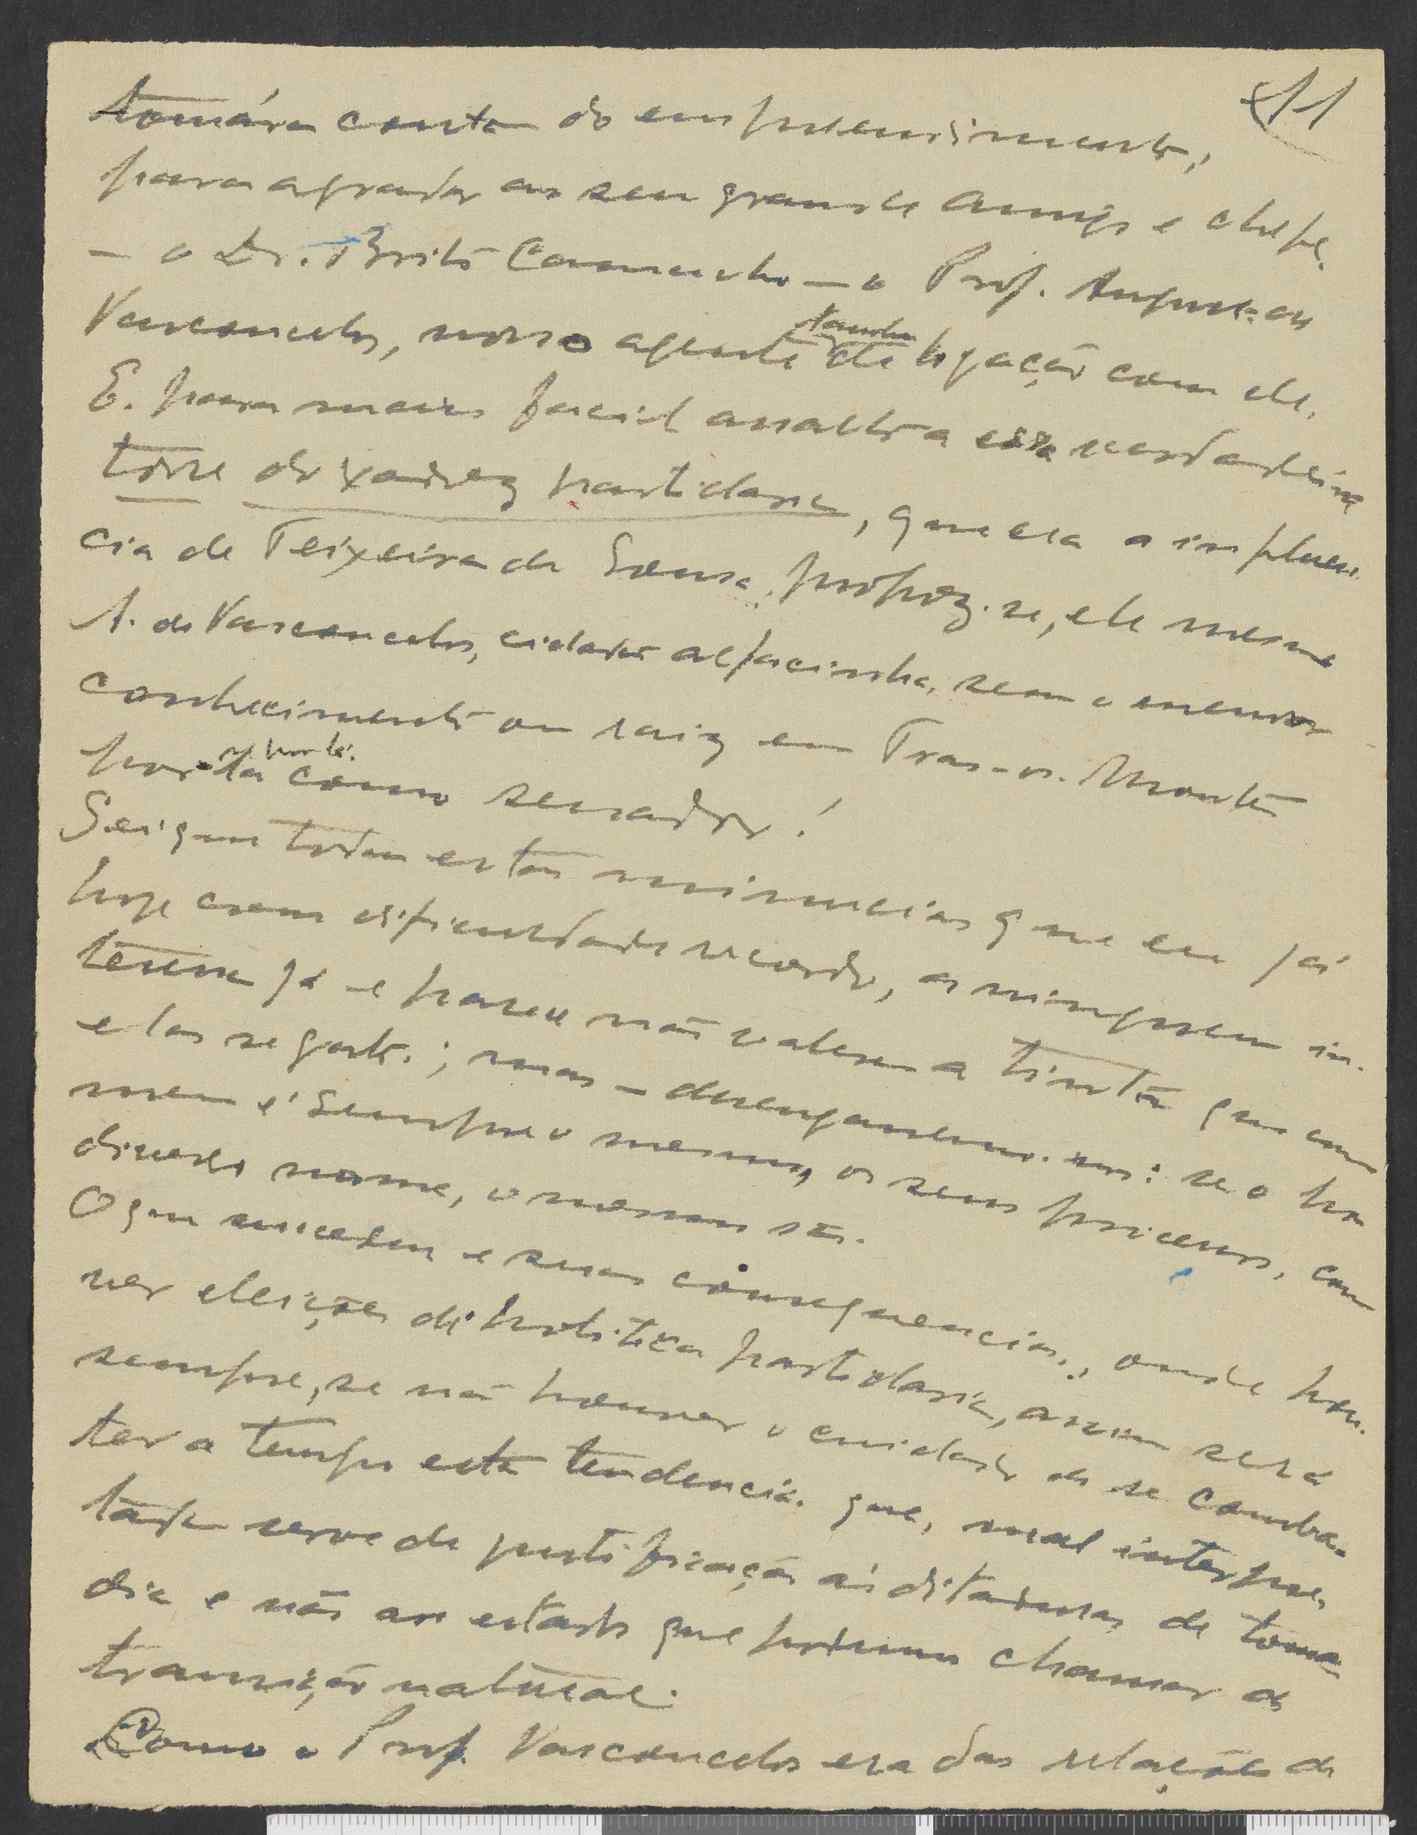 11
tomára conta do empreendimento,
para agradar ao seu grande amigo e chefe
— o Dr. Brito Camacho — o Prof. Augusto de
Vasconcelos, nosso agente de ligação com ele.
E. para mais facil assalto a essa verdadeira
torre do xadrez partidario, que era a influen-
cia de Teixeira de Sousa, propoz-se, ele mesmo
A. de Vasconcelos, cidadão alfacinha, sem o menor
conhecimento ou raiz em Tras-os-Montes
por lá como senador!
Sei que todas estas minucias que eu já
hoje com dificuldade recordo, a ninguem in-
teressam já e parece não valerem a tinta que com
elas se gasta; mas — desenganemo-nos: se o ho
mem é sempre o mesmo, os seus processos, com
diverso nome, o mesmo são.
O que sucedeu e suas consequencias, onde hou-
ver eleições de politica partidaria, assim será
sempre, se não houver o cuidado de se comba-
ter a tempo esta tendencia que, mal interpre-
tada serve de justificação ás ditaduras de toma
dia e não ao estado que podemos chamar de
transição natural.
Como o Prof. Vasconcelos era das relações de